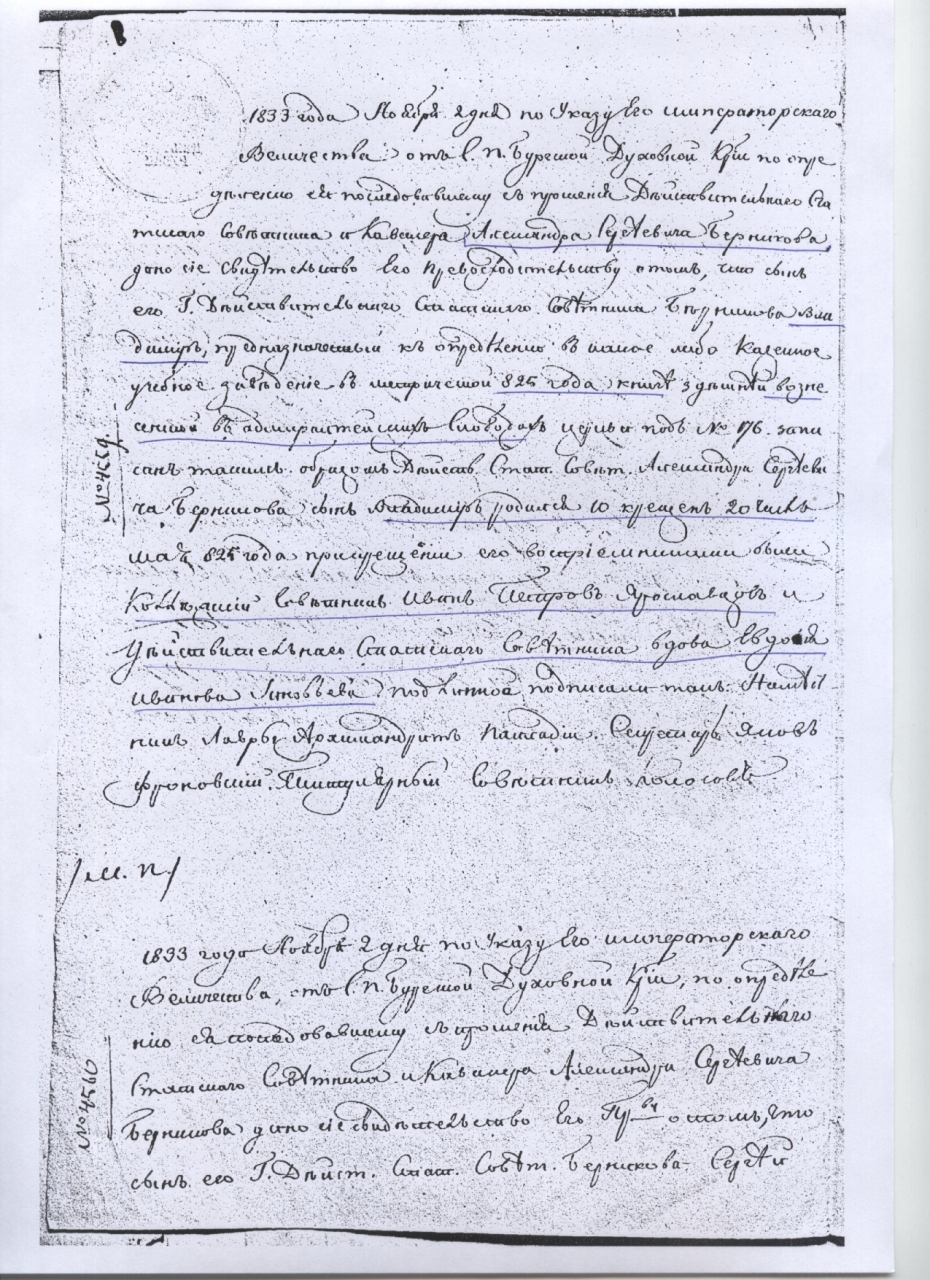 1833 года Ноября 2 дня по Указу Его Императорскаго
Величества отъ С. П. Бургской Духовной Кріи по опре
дѣленію ея последовавшему съ прошенія Дѣйствительнаго Ста
тскаго Совѣтника и Кавалера Александра Сергѣевича Берникова,
дано сіе Свидѣтельство Его Превосходительству о томъ, что сынъ
его Г. Дѣйствительнаго Статскаго Совѣтника Берникова Вла
димиръ, предназначенный къ опредѣленію въ какое либо Казенное
учебное заведеніе въ метрической 825 года книгѣ здѣшней возне
сенской въ адмиралтейскихъ Слободахъ церкви подъ № 176. запи
санъ такимъ образомъ Дѣйств. Стат. Совѣт. Александра Сергѣеви
ча Берникова сынъ Владимиръ родился 10 крещенъ 20 чиселъ
мая 825 года при крещеніи его воспріемниками были
Коллежскій Совѣтникъ Иванъ Петровъ Ярославовъ и
Дѣйствительнаго Статскаго Совѣтника вдова Евдокія
Иванова Зиновьева подлинное подписали такъ. Намѣст
никъ Лавры Архимандритъ Палладій. Секретарь Яковъ
Титулярный Совѣтникъ
/М. П./
№ 4559.
1833 года Ноября 2 дня по Указу Его Императорскаго
Величества, отъ С. П. Бургской Духовной Кріи, по опредѣле
нію ея последовавшему съ прошенія Дѣйствительнаго
Статскаго Совѣтника и Кавалера Александра Сергѣевича
Берникова дано сіе свидѣтельство Его Пр-ву о томъ, что
сынъ его Г. Дѣйст. Стат. Совѣт. Берникова Сергѣй
№ 4560